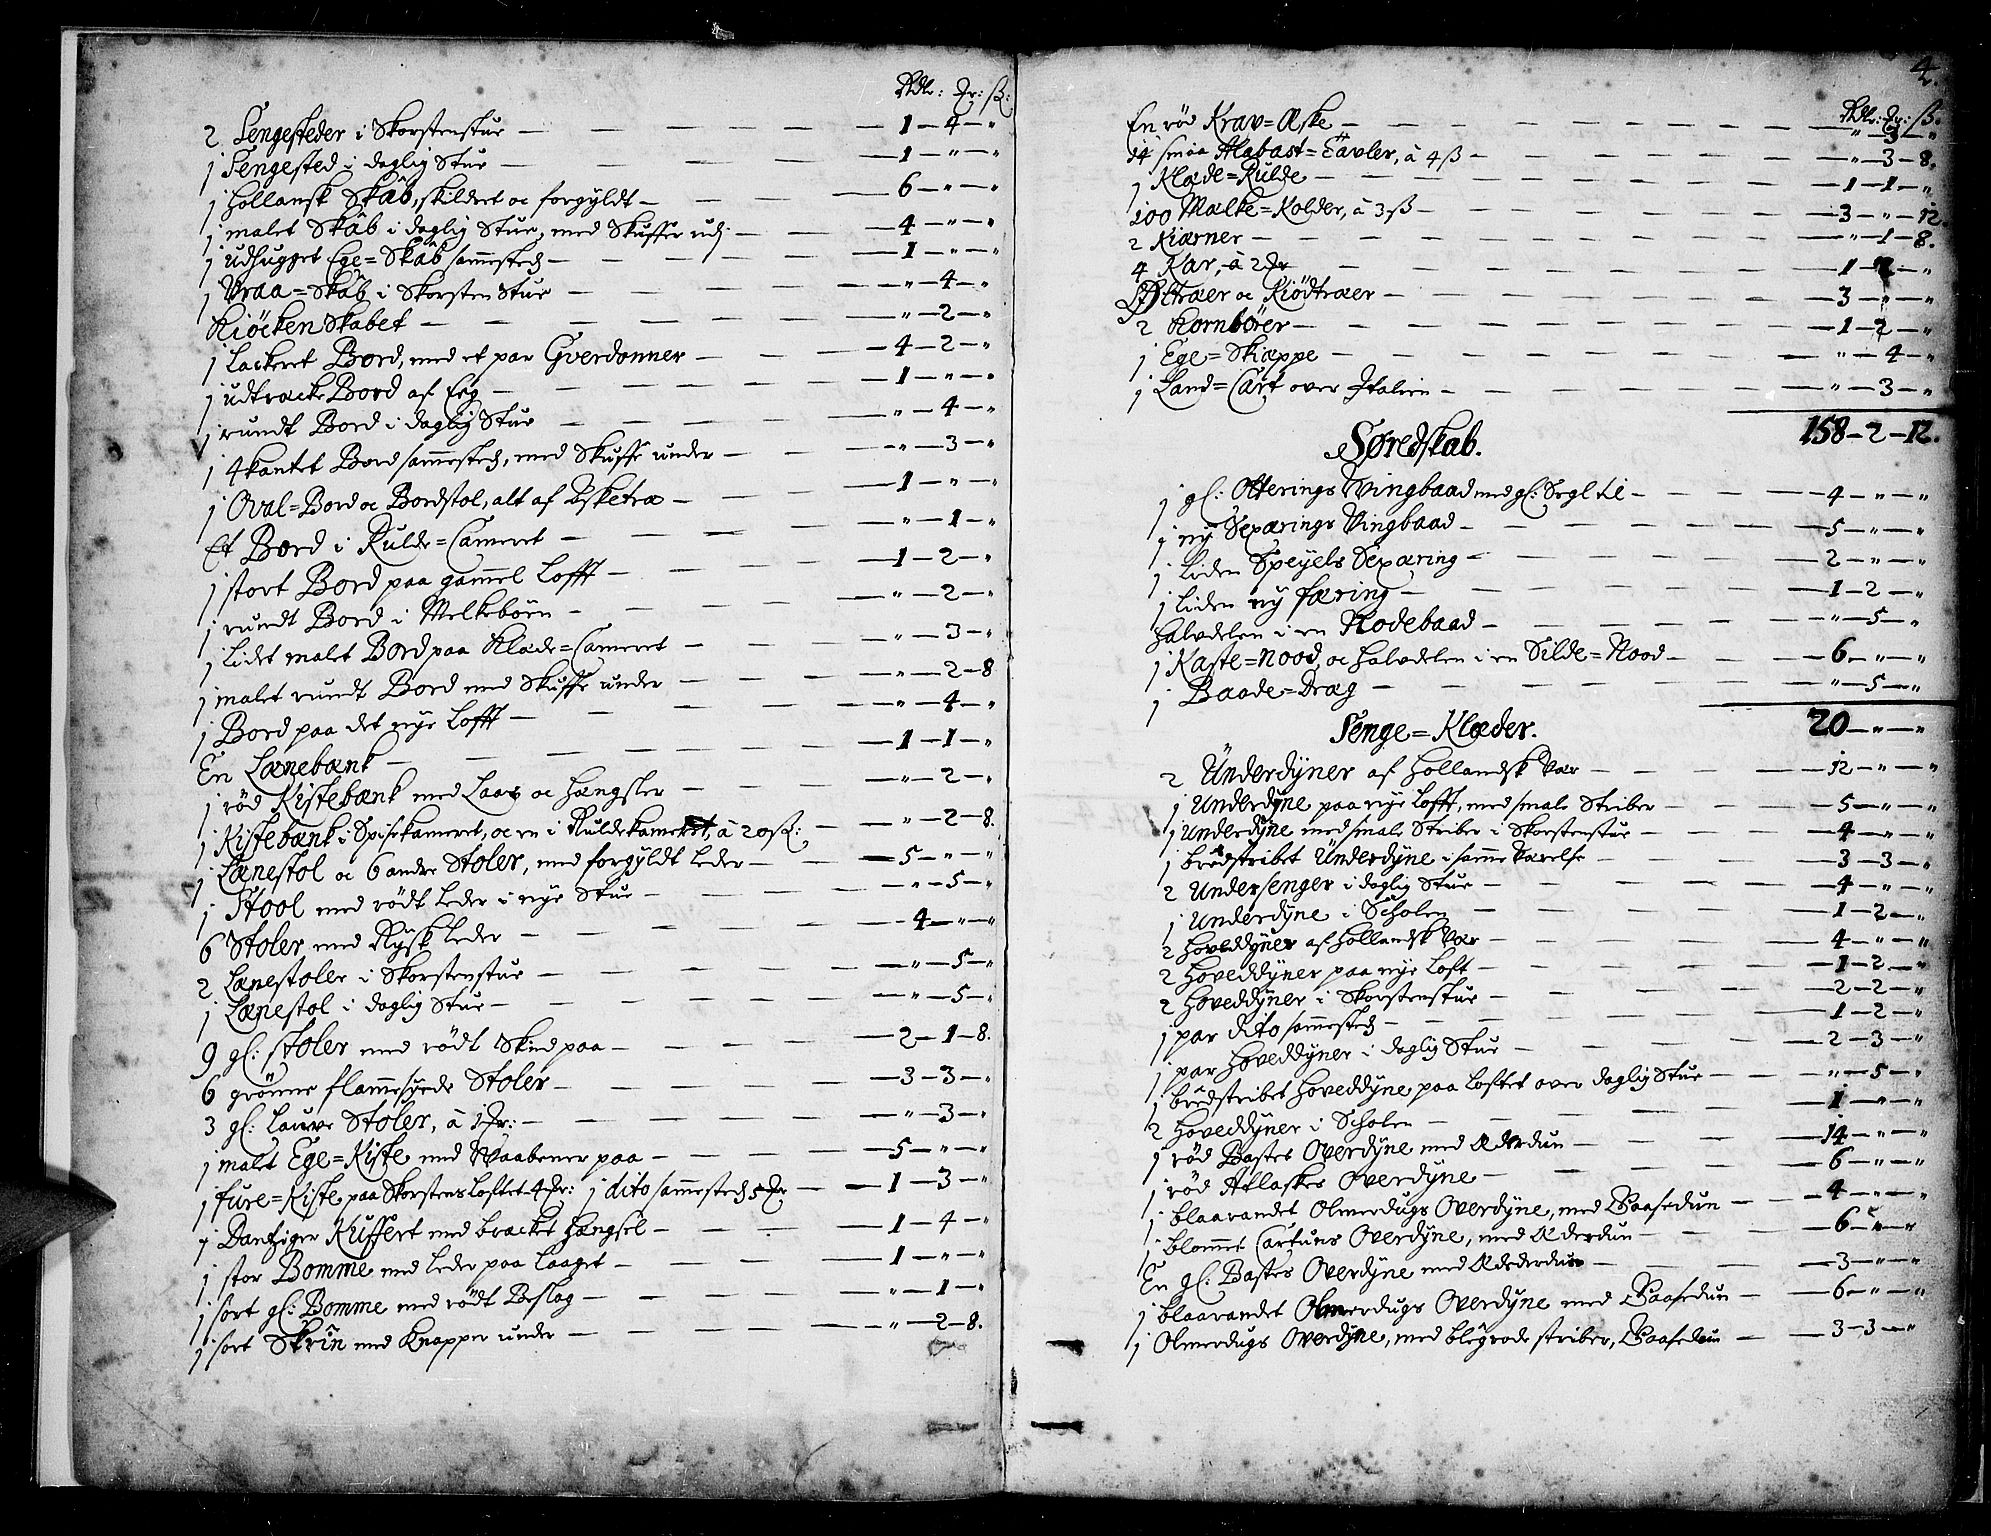 Rdlr: Fr: ß:
2 Sengesteder i Skorstenstue — 1 — 4 — "
1 Sengested i daglig Stue — 1 — " — "
1 Hollansk Skâb, skildret oc forgyldt — 6 — " — "
1 malet Skâb i daglig Stue, med Skuffer udj — 4 — " — "
1 udhugget Ege=Skâb sammesteds — 1 — " — "
1 Vraa=Skâb i Skorsten Stue — " — 4 — "
Kiöcken Skabet — " — 2 — "
1 Lackeret Bord, med et par Gverdonner — 4 — 2 — "
1 udtrœcke Bord af Eeg — 1 — " — "
1 rundt Bord i daglig Stue — " — 4 — "
1 4kantet Bord sammesteds, med Skuffe under — " — 3 — "
1 Oval=Bord oc Bordstol, alt af Asketræ — 1 — " — "
Et Bord i Rulde=Cameret — " — 1 — "
1 stort Bord paa gammel Lofft — 1 — 2 — "
1 rundt Bord i Melkebören — " — 2 — "
1 Lidet malet Bord paa Klæde=Cameret — " — 3 — "
1 malet rundt Bord med Skuffe under — " — 2 — 8
1 Bord paa det nye Lofft — " — 4 — "
En Lænebænk — 1 — 1 — "
1 röd Kistebænk med Laas oc Hængsler — " — 2 — "
1 Kistebænk i Spisekameret, oc en i Ruldekameret, à 20ß: — " — 2 — 8.
1 Lænestol oc 6 andre Stoler, med forgyldt Leder — 5 — " — "
1 Stool med rödt Leder i nye Stue — " — 5 — "
6 Stoler med Rysk Leder — 4 — " — "
2 Lænestoler i Skorstenstue — " — 5 — "
1 Lænestol i daglig Stue — " — 5 — "
9 gl: stoler med rödt Skind paa — 2 — 1 — 8.
6 grönne flammesyede Stoler — 3 — 3 — "
3 gl: Lauve Stoler, à 1 Fr: — " — 3 — "
1 malet Ege=Kiste med Waabener paa — 5 — " — "
1 fure=Kiste paa Skorstens Loftet 4 Fr: 1 dito sammesteds 5 Fr — 1 — 3 — "
1 Dantziger Kuffert med bracket Hængsel — 1 — 4 — "
1 stor Bomme med Leder paa Laaget — 1 — " — "
1 sort gl: Bomme med rödt Beslag — " — 1 — "
1 sort Skrin med Knapper under — " — 2 — 8.
4.
Rdlr: Fr: ß.
En röd Krav=Æske — " — 3 — "
14 smaa Alabast=Tavler, à 4 ß — " — 3 — 8.
1 Klæde=Rulde — 1 — 1 — "
100 Mælke=Kolder, à 3 ß — 3 — " — 12.
2 Kiærner — " — 1 — 8.
4 Kar, à 2 Fr — 1 — 2 — "
Ølträer oc Kiödtræer — 3 — " — "
2 Kornbörer — 1 — 2 — "
1 Ege=Skiæppe — " — 4 — "
1 Land=Cart over Italien — " — 3 — "
158 — 2 — 12.
Søredskab.
1 gl: Otterings Vingbaad med gl: Segl til — 4 — " — "
1 ny Sexærings Vingbaad — 5 — " — "
1 Liden Speyels Sexæring — 2 — " — "
1 Liden ny færing — 1 — 2 — "
Halvdelen i en Rodebaad — " — 5 — "
1 Kaste=Nood, oc Halvdelen i en Silde=Nood — 6 — " — "
1 Baade=Drag — " — 5 — "
20 — " — "
Senge=Klæder.
2 Underdyner af Hollandsk Vær — 12 — " — "
1 Underdyne paa nye Lofft, med smale Striber — 5 — " — "
1 Underdyne med smale Striber i Skorstenstue — 4 — " — "
1 bredstribet Underdyne i samme Værelse — 3 — 3 — "
2 Undersenger i daglig Stue — 4 — " — "
1 Underdyne i Scholen — 1 — 2 — "
2 Hoveddyner af Hollandsk Vær — 4 — " — "
2 Hoveddyner paa nye Loft — 1 — 2 — "
2 Hoveddyner i Skorstenstue — 2 — 2 — "
1 par dito sammesteds — 1 — 2 — "
1 par Hoveddyner i daglig Stue — 2 — 3 — "
1 bredstribet Hoveddyne paa Loftet over daglig Stue — " — 5 — "
2 Hoveddyner i Scholen — 1 — " — "
1 röd Bastes Overdyne med Æderdun — 14 — " — "
1 röd Atlaskes Overdyne — 6 — " — "
1 blaarandet Olmerdugs Overdyne, med Gaasedun — 4 — " — "
1 blommet Cartuns Overdyne, med Æderdun — 6 — " — "
En gl: Bastes Overdyne med Ædederdun — 3 — " — "
1 blaarandet Olmerdugs Overdyne med Gaasedun — 6 — " — "
1 Olmerdugs Overdyne, med blegrøde striber, Gaasedun — 3 — 3 — "